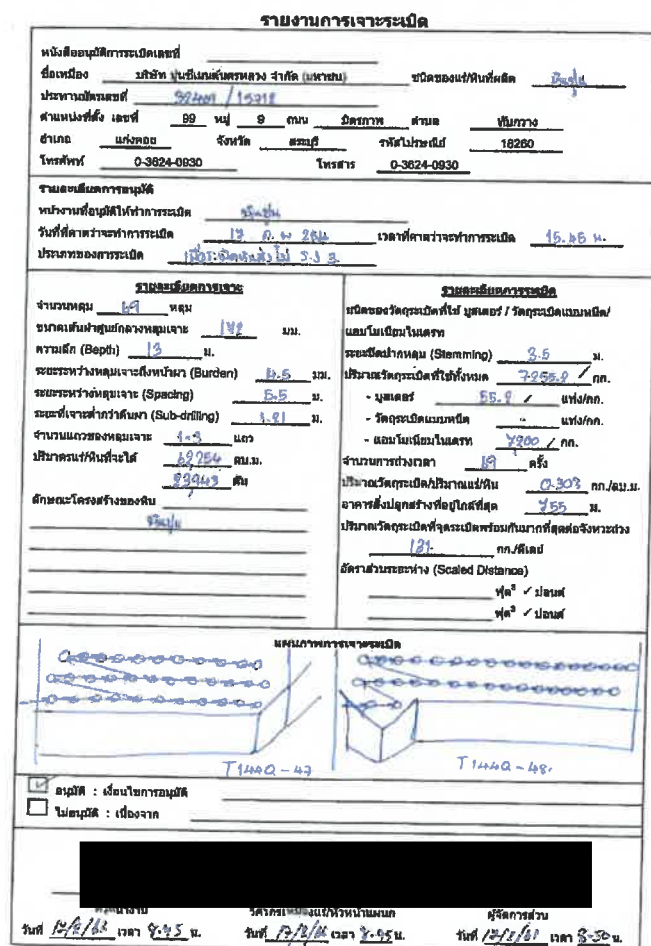 รายงานการเจาะระเบิด
หนังสืออนุมัติการระเบิดเลขที่
ชื่อเหมือง บริษัท ปูนซีเมนต์นครหลวง จำกัด (มหาชน) ชนิดของแร่/หินที่ผลิต หินปูน
ประทานบัตรเลขที่
ตำแหน่งที่ตั้ง เลขที่ 99 หมู่ 9 ถนน มิตรภาพ ตำบล ทับกวาง
อำเภอ แก่งคอย จังหวัด สระบุรี รหัสไปรษณีย์ 18260
โทรศัพท์ 0-3624-0930 โทรสาร 0-3624-0930
รายละเอียดการอนุมัติ
หน้างานที่อนุมัติให้ทำการระเบิด หินปูน
วันที่ที่คาดว่าจะทำการระเบิด 17 ก.พ เวลาที่คาดว่าจะทำการระเบิด 15.45 น.
ประเภทของการระเบิด
รายละเอียดการเจาะ
จำนวนหลุม 69 หลุม
ขนาดเส้นผ่าศูนย์กลางหลุมเจาะ มม.
ความลึก (Depth) 13 ม.
ระยะระหว่างหลุมเจาะถึงหน้าผา (Burden) 4.5 มม.
ระยะระหว่างหลุมเจาะ (Spacing) 5.5 ม.
ระยะที่เจาะต่ำกว่าตีนผา (Sub-drilling) ม.
จำนวนแถวของหลุมเจาะ 1-3 แถว
ปริมาตรแร่/หินที่จะได้ ตบ.ม.
ตัน
ลักษณะโครงสร้างของหิน
หินปูน
รายละเอียดการระเบิด
ชนิดของวัตถุระเบิดที่ใช้ บูสเตอร์ / วัตถุระเบิดแบบหนืด/
แอมโมเนียมไนเตรท
ระยะปิดปากหลุม (Stemming) 3.5 ม.
ปริมาณวัตถุระเบิดที่ใช้ทั้งหมด 7255.2 กก.
- บูสเตอร์ 55.2 แท่ง/กก.
- วัตถุระเบิดแบบหนืด - แท่ง/กก.
- แอมโมเนียมไนเตรท 7200 / กก.
จำนวนการถ่วงเวลา 69 ครั้ง
ปริมาณวัตถุระเบิด/ปริมาณแร่/หิน 0.303 กก./ตบ.ม.
อาคารสิ่งปลูกสร้างที่อยู่ใกล้ที่สุด 755 ม.
ปริมาณวัตถุระเบิดที่จุดระเบิดพร้อมกันมากที่สุดต่อจังหวะถ่วง
กก./ดีเลย์
อัตราส่วนระยะห่าง (Scaled Distance)
ฟุต³ ✓ ปอนด์
ฟุต³ ✓ ปอนด์
แผนภาพการเจาะระเบิด
T144Q-47
T144Q-48.
☑ อนุมัติ : เงื่อนไขการอนุมัติ
☐ ไม่อนุมัติ : เนื่องจาก
หัวหน้างาน วิศวกรเหมืองแร่/หัวหน้าแผนก ผู้จัดการส่วน
วันที่ เวลา 8.45 น. วันที่ เวลา 8.45 น. วันที่ เวลา 8.50 น.